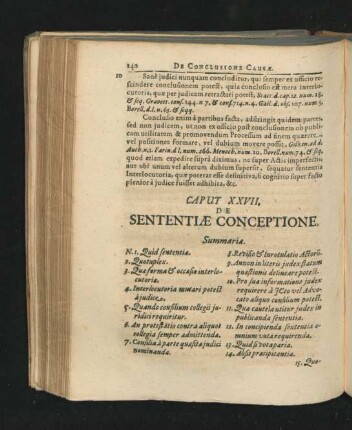 240 DE CONCLUSIONE CAUSÆ.
10 Sanè judici nunquam concluditur, qui semper ex officio re-
scindere conclusionem potest, quia conclusio est mera interlo-
cutoria, quæ per judicem retractari potest,
Conclusio enim à partibus facta, adstringit quidem partes,
sed non judicem, ut non ex officio post conclusionem ob publi-
cam utilitatem & promovendum Processum
vel positiones formare, vel dubium movere possit,
quod etiam expedire suprà diximus, ne super Actis imperfectis
nec unius, nec alterum dubium superfit, sequatur sententia
Interlocutoria, quæ poterat esse definitiva, si cognitio super facto
plenior à judice fuisset adhibita, &c.
CAPUT XXVII.
DE
SENTENTIÆ CONCEPTIONE.
Summaria.
N. 1. Quid sententia.
2. Quotuplex.
3. Quæ forma & occasio interlo-
cutoria.
4. Interlocutoria mutari potest
à judice.
5. Quando consilium collegii ju-
ridici requiritur.
6. An protestatio contra aliquot
collegia semper admittenda.
7. Consilia à parte quæsita judici
nominanda.
8. Revisio & Inrotulatio Actorū.
9. Annon in literis judex statum
quæstionis delineare potest.
10. Pro sua informatione judex
requirere à JCto vel Advo-
cato aliquo consilium potest.
11. Qua cautela utitur judex in
publicanda sententia.
12. In concipienda sententia o-
mnium vota requirenda.
13. Quid si vota paria.
14. Alis præcipitantia.
15. Quo-